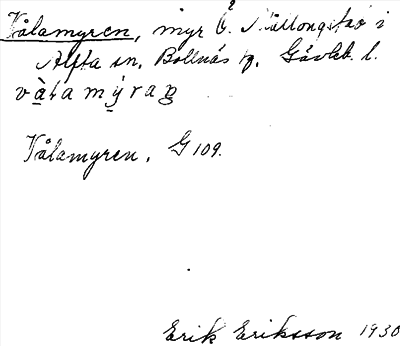 Vålamyren, myr Ö. Mållångstao i
Alfta sn. Bollnäs tg. Gävleb. l.
vàlamýran
Vålamyren. G 109.
Erik Eriksson 1930